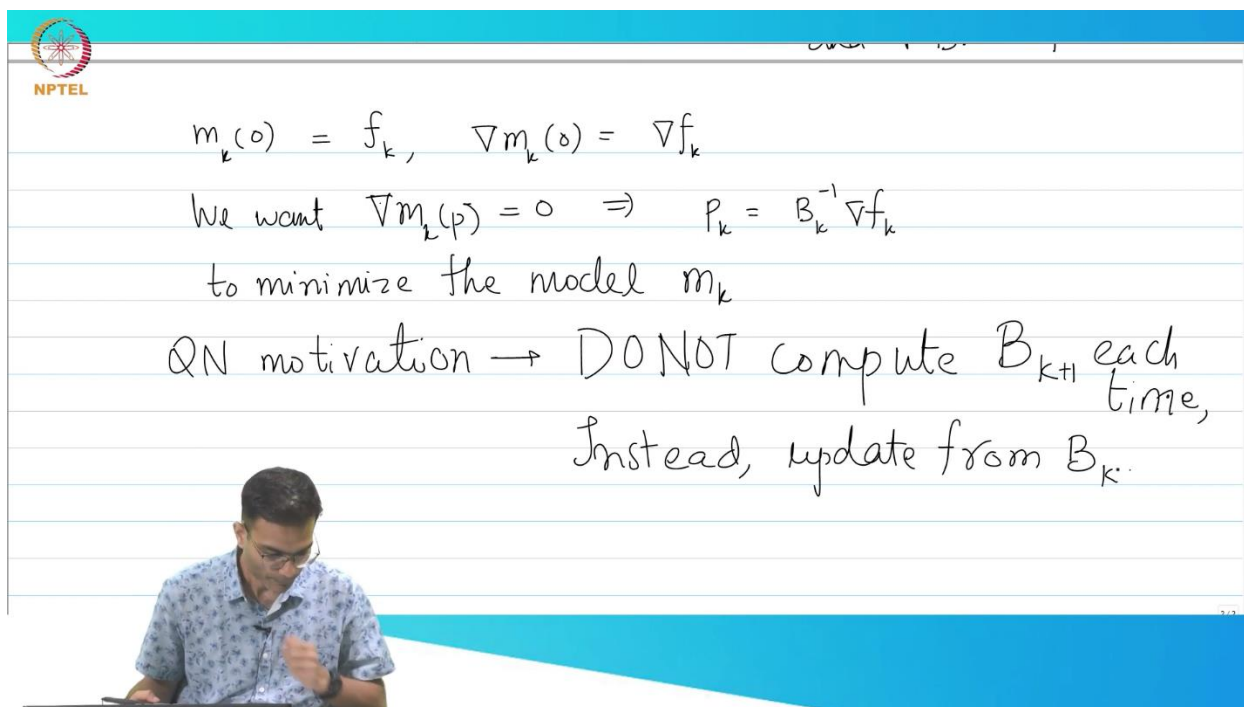 NPTEL
m_k(0) = f_k, ∇m_k(0) = ∇f_k
We want ∇m_k(p) = 0 ⇒ p_k = B_k^{-1} ∇f_k
to minimize the model m_k
QN motivation → DO NOT compute B_{k+1} each
time,
Instead, update from B_k.